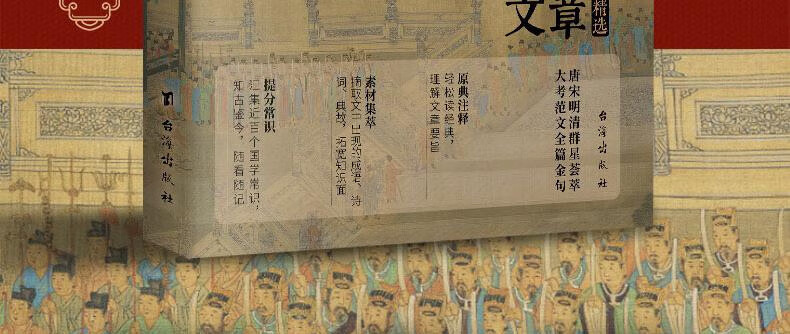 文章
精选
唐宋明清群星荟萃
大考范文全篇金句
台海出版社
原典注释
轻松读经典，
理解文章要旨
素材集萃
摘取文中出现的成语、诗
词、典故，拓宽知识面
提分常识
汇集近百个国学常识，
知古鉴今，随看随记
台海出版社